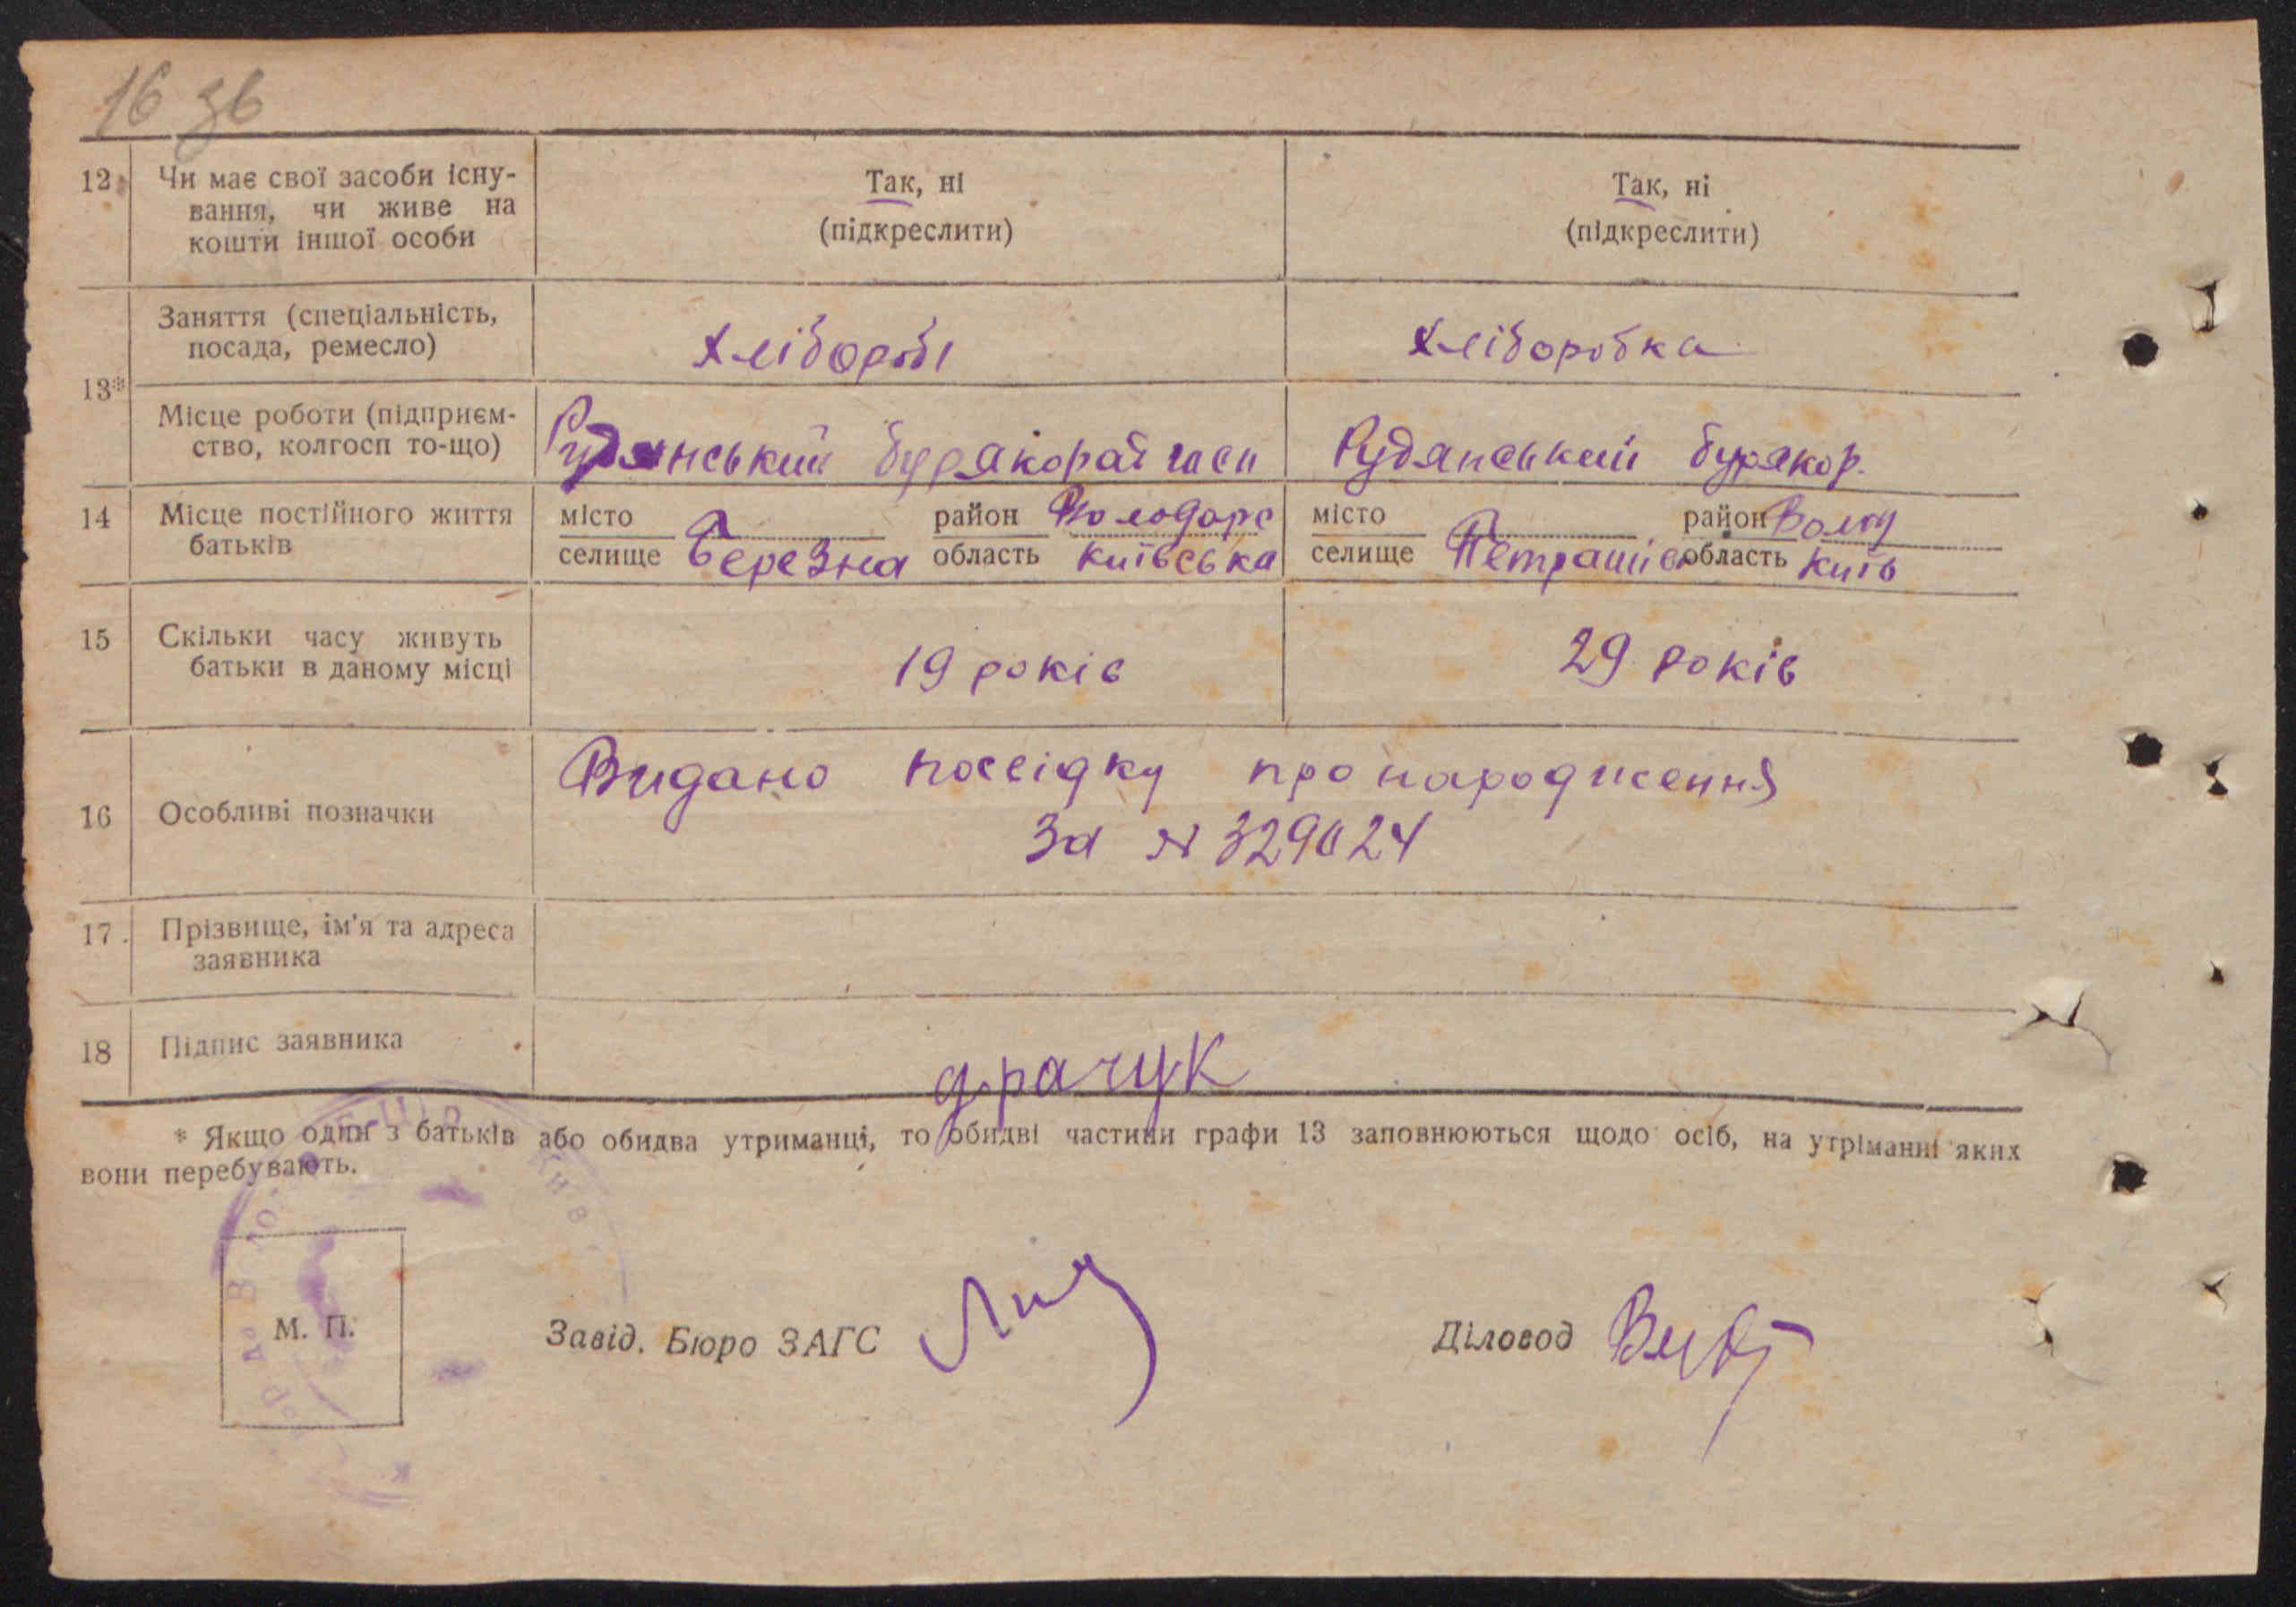 16 зв
12 Чи має свої засоби існу-
вання, чи живе на
кошти іншої особи
Так, ні
(підкреслити)
Так, ні
(підкреслити)
13*
Заняття (спеціальність,
посада, ремесло)
хлібороб
хліборобка
Місце роботи (підприєм-
ство, колгосп то-що)
Рудянський
Рудянський бурякор.
14 Місце постійного життя
батьків
місто
селище Березна
район Володарс
область Київська
місто
селище
район Волод
область Київ
15 Скільки часу живуть
батьки в даному місці
19 років
29 років
16 Особливі позначки
Видано посвідку про народження
За № 329024
17 Прізвище, ім'я та адреса
заявника
18 Підпис заявника
драчук
* Якщо один з батьків або обидва утриманці, то обидві частини графи 13 заповнюються щодо осіб, на утріманні яких
вони перебувають.
М. П.
Завід. Бюро ЗАГС
Діловод